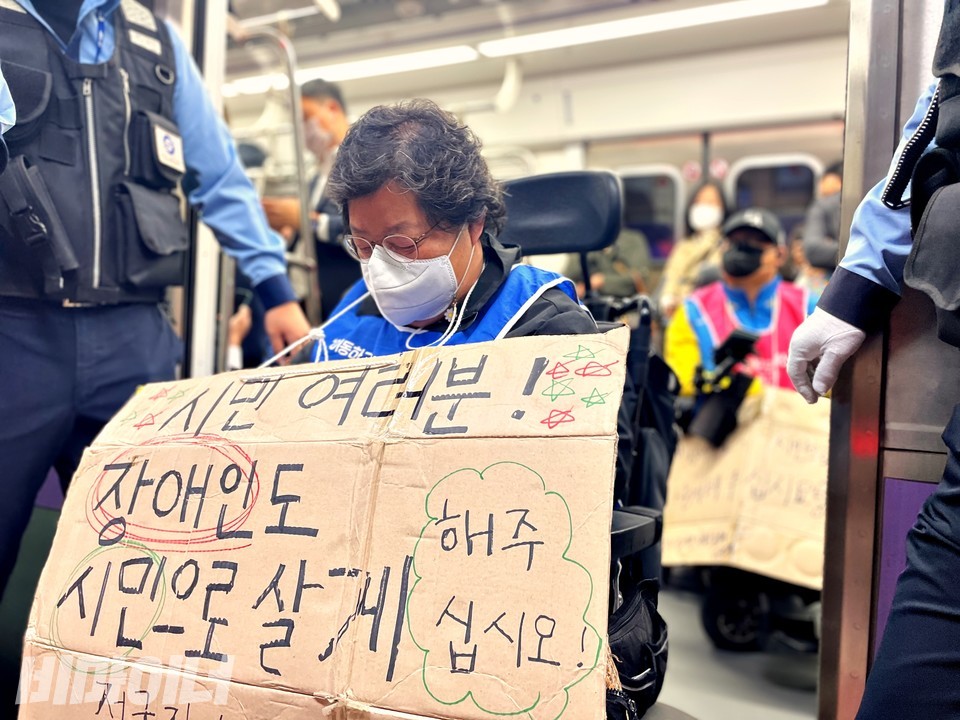 시민 여러분!
장애인도
시민으로 살게
해주
십시오!
비마이너